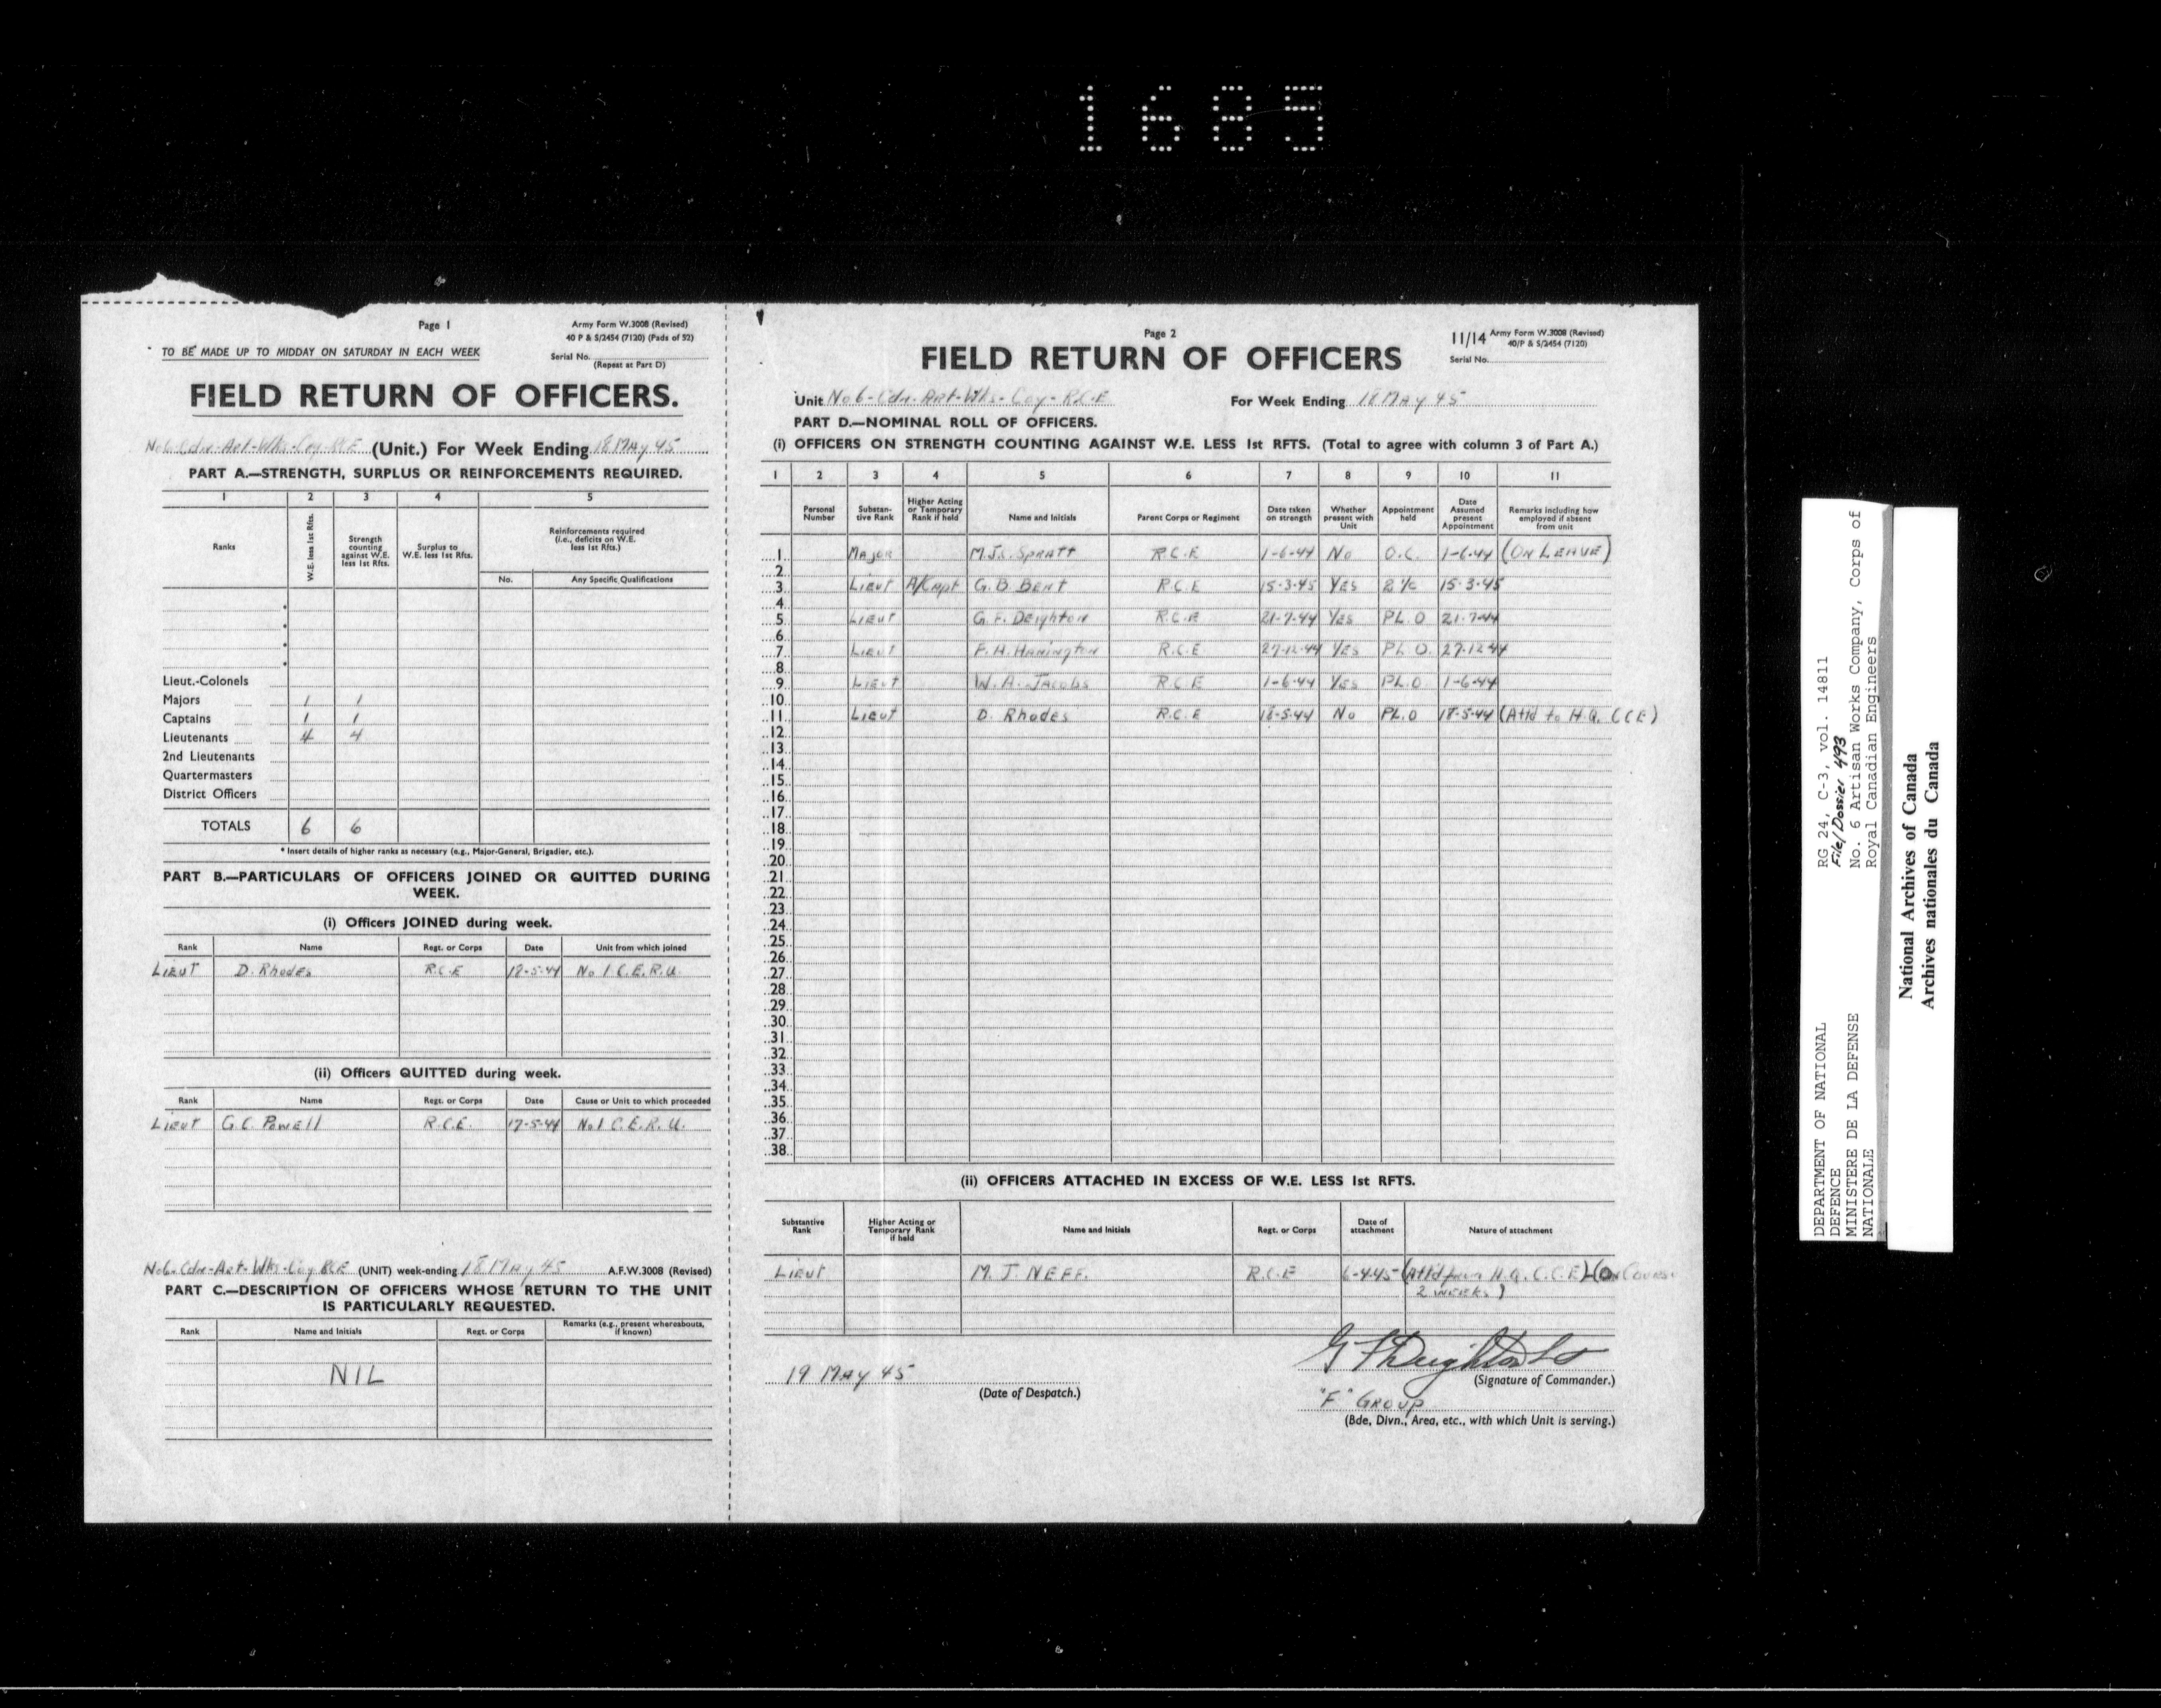 1685
Page 1
Army Form W.3008 (Revised)
40 P & S/2454 (7120) (Pads of 52)
TO BE MADE UP TO MIDDAY ON SATURDAY IN EACH WEEK
Serial No.
(Repeat at Part D)
FIELD RETURN OF OFFICERS.
No6-Cdn-Art-Wks-Coy-RCE (Unit.) For Week Ending 18 MAy 45
PART A.—STRENGTH, SURPLUS OR REINFORCEMENTS REQUIRED.
1 2 3 4 5
Ranks
W.E. less 1st Rfts.
Strength counting against W.E. less 1st Rfts.
Surplus to W.E. less 1st Rfts.
Reinforcements required (i.e., deficits on W.E. less 1st Rfts.)
No. Any Specific Qualifications
Lieut.-Colonels
Majors 1 1
Captains 1 1
Lieutenants 4 4
2nd Lieutenants
Quartermasters
District Officers
TOTALS 6 6
* Insert details of higher ranks as necessary (e.g., Major-General, Brigadier, etc.).
PART B.—PARTICULARS OF OFFICERS JOINED OR QUITTED DURING
WEEK.
(i) Officers JOINED during week.
Rank Name Regt. or Corps Date Unit from which joined
Lieut D. Rhodes R.C.E 18-5-44 No 1 C.E.R.U.
(ii) Officers QUITTED during week.
Rank Name Regt. or Corps Date Cause or Unit to which proceeded
Lieut G.C. Powell R.C.E. 17-5-44 No1 C.E.R.U.
No6-Cdn-Art-Wks-Coy RCE (UNIT) week-ending 18 MAy 45 A.F.W.3008 (Revised)
PART C.—DESCRIPTION OF OFFICERS WHOSE RETURN TO THE UNIT
IS PARTICULARLY REQUESTED.
Rank Name and Initials Regt. or Corps Remarks (e.g., present whereabouts, if known)
NIL
Page 2
11/14 Army Form W.3008 (Revised)
40/P & S/2454 (7120)
Serial No.
FIELD RETURN OF OFFICERS
Unit No6-Cdn-Art-Wks-Coy-RCE For Week Ending 18 MAy 45
PART D.—NOMINAL ROLL OF OFFICERS.
(i) OFFICERS ON STRENGTH COUNTING AGAINST W.E. LESS 1st RFTS. (Total to agree with column 3 of Part A.)
1 2 3 4 5 6 7 8 9 10 11
Personal Number
Substantive Rank
Higher Acting or Temporary Rank if held
Name and Initials
Parent Corps or Regiment
Date taken on strength
Whether present with Unit
Appointment held
Date Assumed present Appointment
Remarks including how employed if absent from unit
1 Major M.J.C. Spratt R.C.E 1-6-44 No O.C. 1-6-44 (On Leave)
2
3 Lieut A/Capt G.B Bent R.C.E 15-3-45 Yes 2 i/c 15-3-45
4
5 Lieut G.F. Deighton R.C.E 21-7-44 Yes PL.O 21-7-44
6
7 Lieut F.H. Hanington R.C.E 27-12-44 Yes PL O. 27-12 44
8
9 Lieut W.A. Jacobs R.C.E 1-6-44 Yes PL.O 1-6-44
10
11 Lieut D. Rhodes R.C.E 18-5-44 No PL.O 18-5-44 (Attd to H.Q. CCE)
12
13
14
15
16
17
18
19
20
21
22
23
24
25
26
27
28
29
30
31
32
33
34
35
36
37
38
(ii) OFFICERS ATTACHED IN EXCESS OF W.E. LESS 1st RFTS.
Substantive Rank
Higher Acting or Temporary Rank if held
Name and Initials
Regt. or Corps
Date of attachment
Nature of attachment
Lieut M.J. NEFF. R.C.E 6-4-45 (Attd from H.Q. C.C.E)-(On Course
2 weeks)
19 MAy 45
(Date of Despatch.)
G F Deighton Lt
(Signature of Commander.)
"F" GROUP
(Bde, Divn., Area, etc., with which Unit is serving.)
DEPARTMENT OF NATIONAL
DEFENCE
MINISTERE DE LA DEFENSE
NATIONALE
RG 24, C-3, vol. 14811
File/Dossier 493
No. 6 Artisan Works Company, Corps of
Royal Canadian Engineers
National Archives of Canada
Archives nationales du Canada